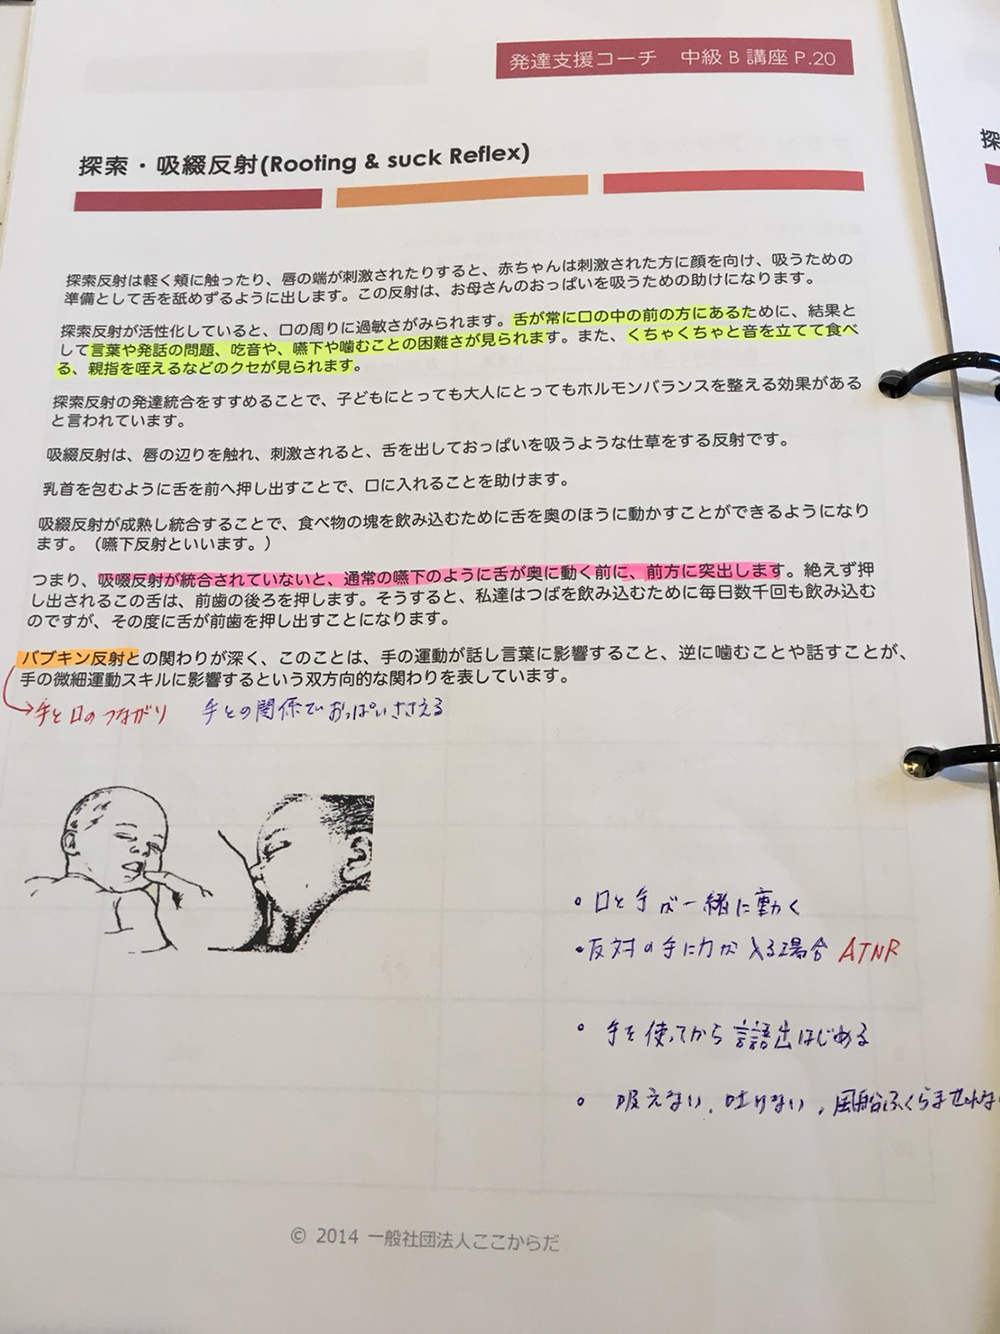 発達支援コーチ　中級B講座 P.20
探索・吸綴反射(Rooting & suck Reflex)
探索反射は軽く頬に触ったり、唇の端が刺激されたりすると、赤ちゃんは刺激された方に顔を向け、吸うための
準備として舌を舐めずるように出します。この反射は、お母さんのおっぱいを吸うための助けになります。
探索反射が活性化していると、口の周りに過敏さがみられます。舌が常に口の中の前の方にあるために、結果と
して言葉や発話の問題、吃音や、嚥下や噛むことの困難さが見られます。また、くちゃくちゃと音を立てて食べ
る、親指を咥えるなどのクセが見られます。
探索反射の発達統合をすすめることで、子どもにとっても大人にとってもホルモンバランスを整える効果がある
と言われています。
吸綴反射は、唇の辺りを触れ、刺激されると、舌を出しておっぱいを吸うような仕草をする反射です。
乳首を包むように舌を前へ押し出すことで、口に入れることを助けます。
吸綴反射が成熟し統合することで、食べ物の塊を飲み込むために舌を奥のほうに動かすことができるようになり
ます。（嚥下反射といいます。）
つまり、吸啜反射が統合されていないと、通常の嚥下のように舌が奥に動く前に、前方に突出します。絶えず押
し出されるこの舌は、前歯の後ろを押します。そうすると、私達はつばを飲み込むために毎日数千回も飲み込む
のですが、その度に舌が前歯を押し出すことになります。
バブキン反射との関わりが深く、このことは、手の運動が話し言葉に影響すること、逆に噛むことや話すことが、
手の微細運動スキルに影響するという双方向的な関わりを表しています。
手と口のつながり　手との関係でおっぱいささえる
・口と手が一緒に動く
・反対の手に力が入る場合 ATNR
・手を使ってから言語出はじめる
・吸えない、吐けない、風船ふくらませれな
© 2014 一般社団法人ここからだ
探